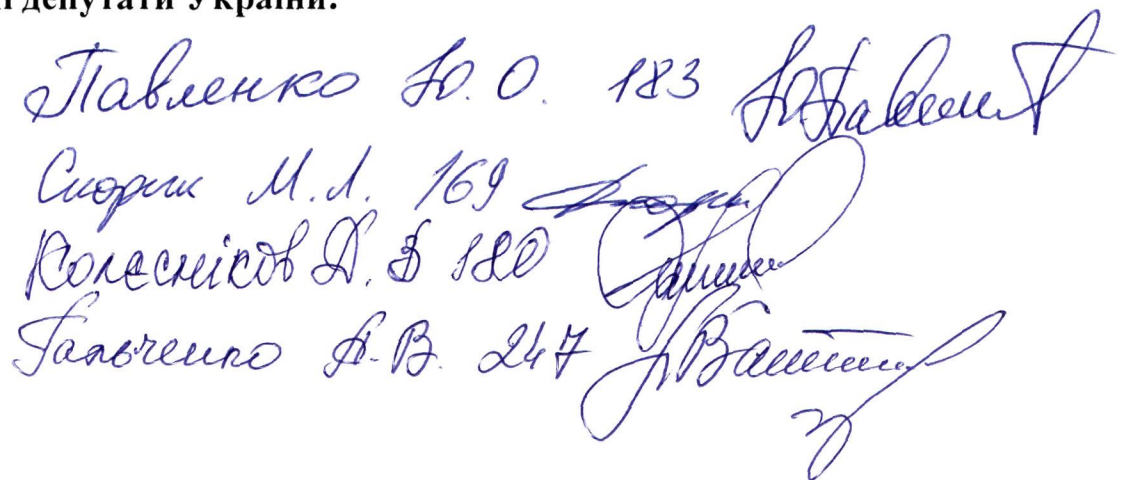 депутати України:
Павленко Ю.О. 183
Скорик М.Л. 169
Колєсніков Д.В 180
Гальченко А.В. 247